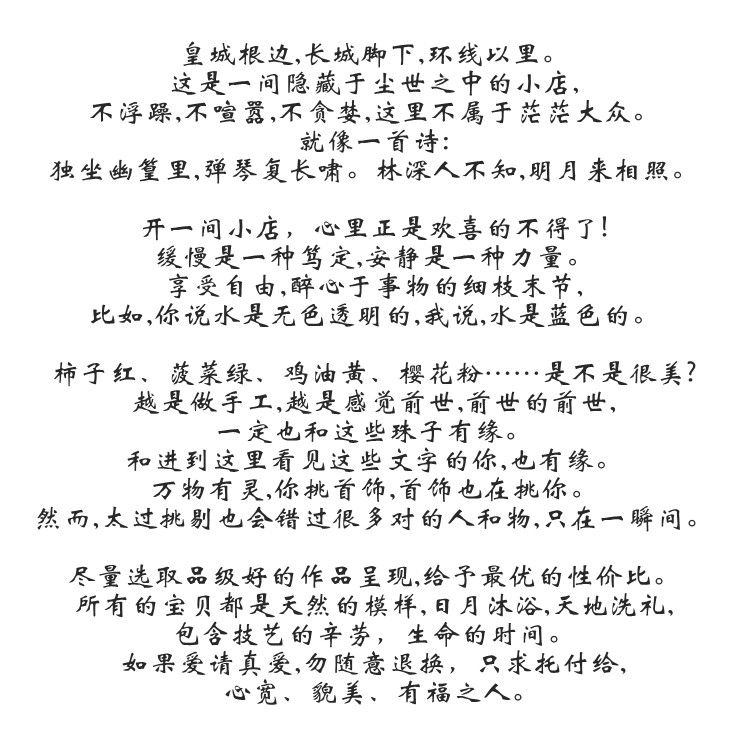 皇城根边,长城脚下,环线以里。
这是一间隐藏于尘世之中的小店,
不浮躁,不喧嚣,不贪婪,这里不属于茫茫大众。
就像一首诗:
独坐幽篁里,弹琴复长啸。林深人不知,明月来相照。
开一间小店，心里正是欢喜的不得了!
缓慢是一种笃定,安静是一种力量。
享受自由,醉心于事物的细枝末节,
比如,你说水是无色透明的,我说,水是蓝色的。
柿子红、菠菜绿、鸡油黄、樱花粉……是不是很美?
越是做手工,越是感觉前世,前世的前世,
一定也和这些珠子有缘。
和进到这里看见这些文字的你,也有缘。
万物有灵,你挑首饰,首饰也在挑你。
然而,太过挑剔也会错过很多对的人和物,只在一瞬间。
尽量选取品级好的作品呈现,给予最优的性价比。
所有的宝贝都是天然的模样,日月沐浴,天地洗礼,
包含技艺的辛劳，生命的时间。
如果爱请真爱,勿随意退换，只求托付给,
心宽、貌美、有福之人。